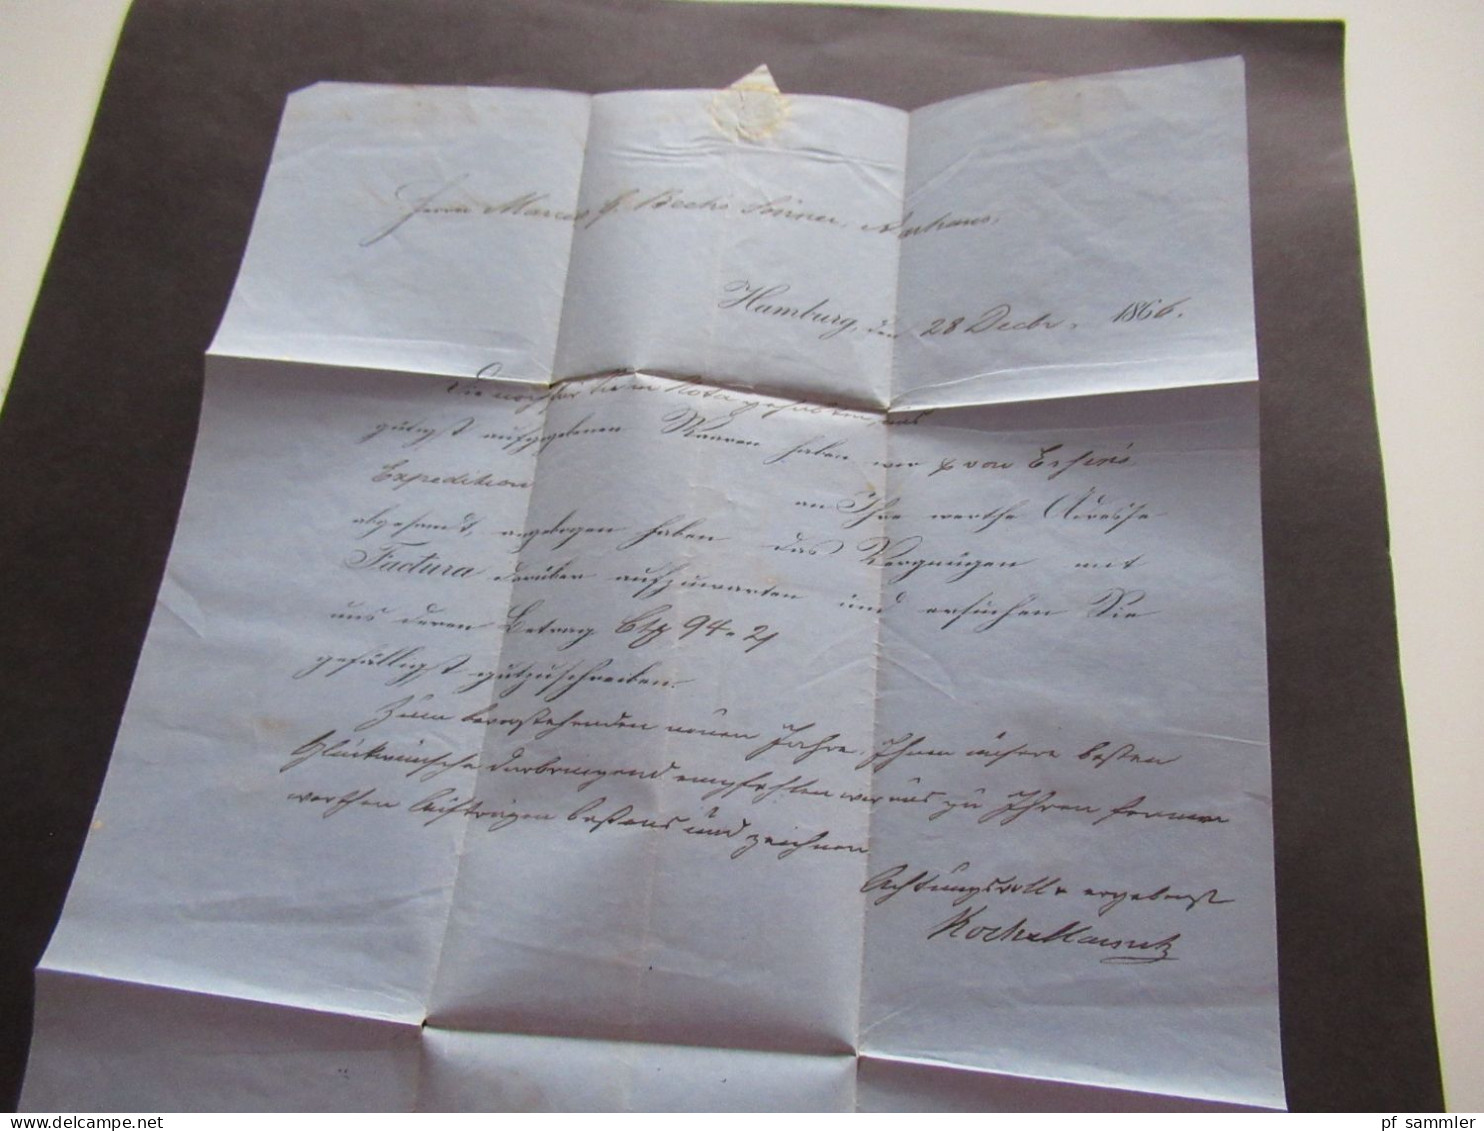 Herrn Marcus J. Bech's Söhner, Aarhuus.
Hamburg, den 28 Decbr. 1866.
Die noch für Ihre Nota gehabten, uns
gütigst aufgegebenen Waaren haben wir p. von
Expedition an Ihre werthe Adresse
abgesandt, haben das Vergnügen mit
Factura darüber aufzuwarten und ersuchen Sie
uns deren Betrag 94 " 21
gefälligst gutzuschreiben.
Zum bevorstehenden neuen Jahre, Ihnen unsere besten
Glückwünsche darbringend empfehlen wir uns zu Ihren fernern
werthen Aufträgen bestens und zeichnen
Achtungsvoll & ergebenst
Koch &
pf_sammler - delcampe.net